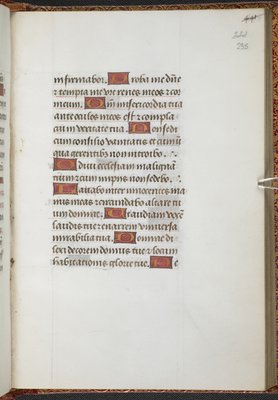 infirmabor. Proba me dñe
et tempta me vre renes meos et cor
meum. Qm̃ misericordia tua
ante oculos meos est et compla
cui in veritate tua. Non sedi
cum consilio vanitatis et cum in
qua gerentibus non introibo.
Odivi ecclesiam malignã
tium et cum impiis non sedebo.
Lavabo inter innocentes ma
nus meas et circundabo altare tu
um domine. Ut audiam vocẽ
laudis tue et enarrem universa
mirabilia tua. Domine di
lexi decorem domus tue et locum
habitationis glorie tue. Ne